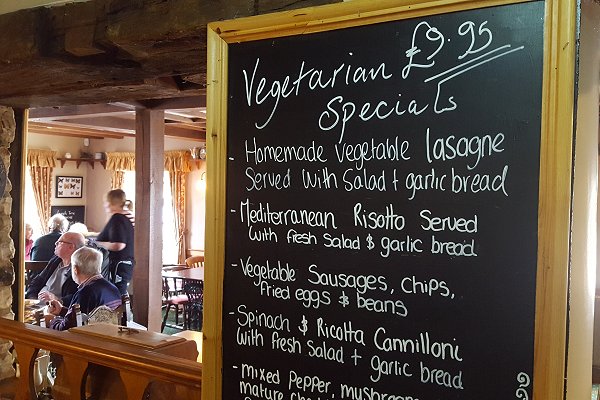 Vegetarian £9.95
Specials
- Homemade vegetable lasagne
Served with Salad + garlic bread
- Mediterranean Risotto Served
with fresh Salad & garlic bread
- Vegetable Sausages, chips,
fried eggs & beans
- Spinach & Ricotta Cannilloni
with fresh Salad + garlic bread
- mixed Pepper, mushroom
mature